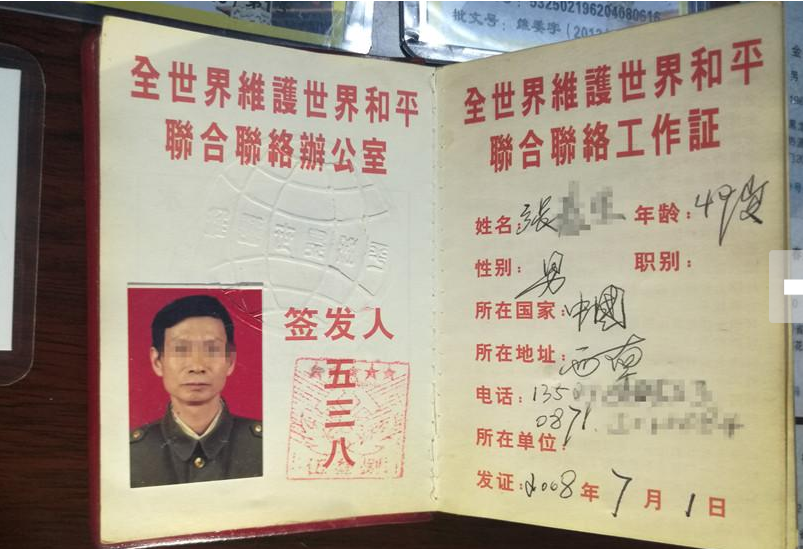 532502196204080616
批文号：維委字（2012
全世界維護世界和平
聯合聯絡辦公室
签发人
五三八
全世界維護世界和平
聯合聯絡工作証
姓名：張 年龄：49岁
性别：男 职别：
所在国家：中國
所在地址：西南
电话：135
0871
所在单位：
发证：2008年7月1日